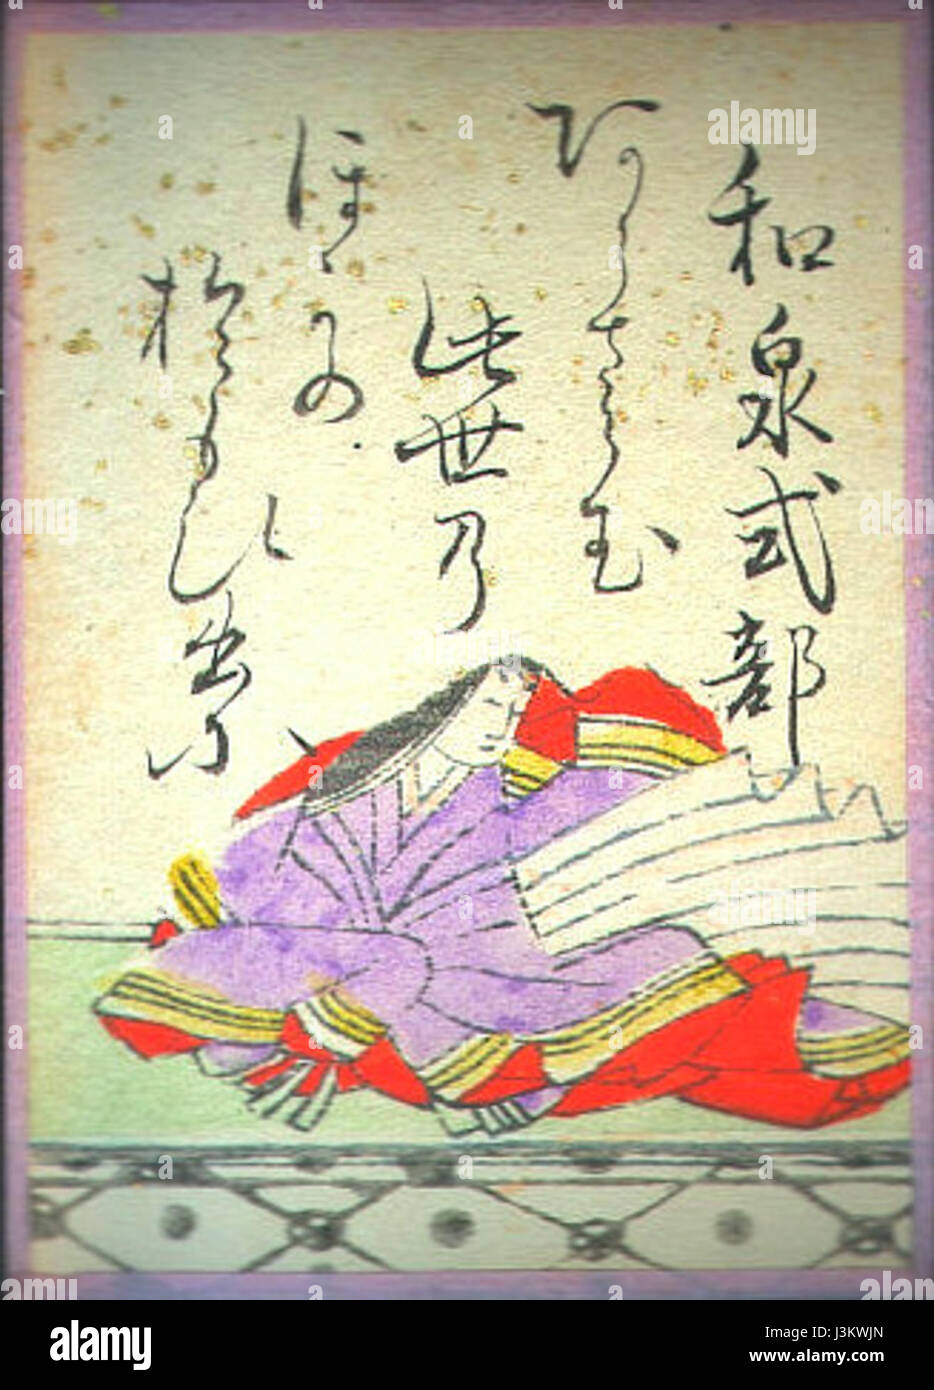 和泉式部
あらさらむ
此世乃
ほかの
おもひ出に
alamy
Image ID: J3KWJN
www.alamy.com